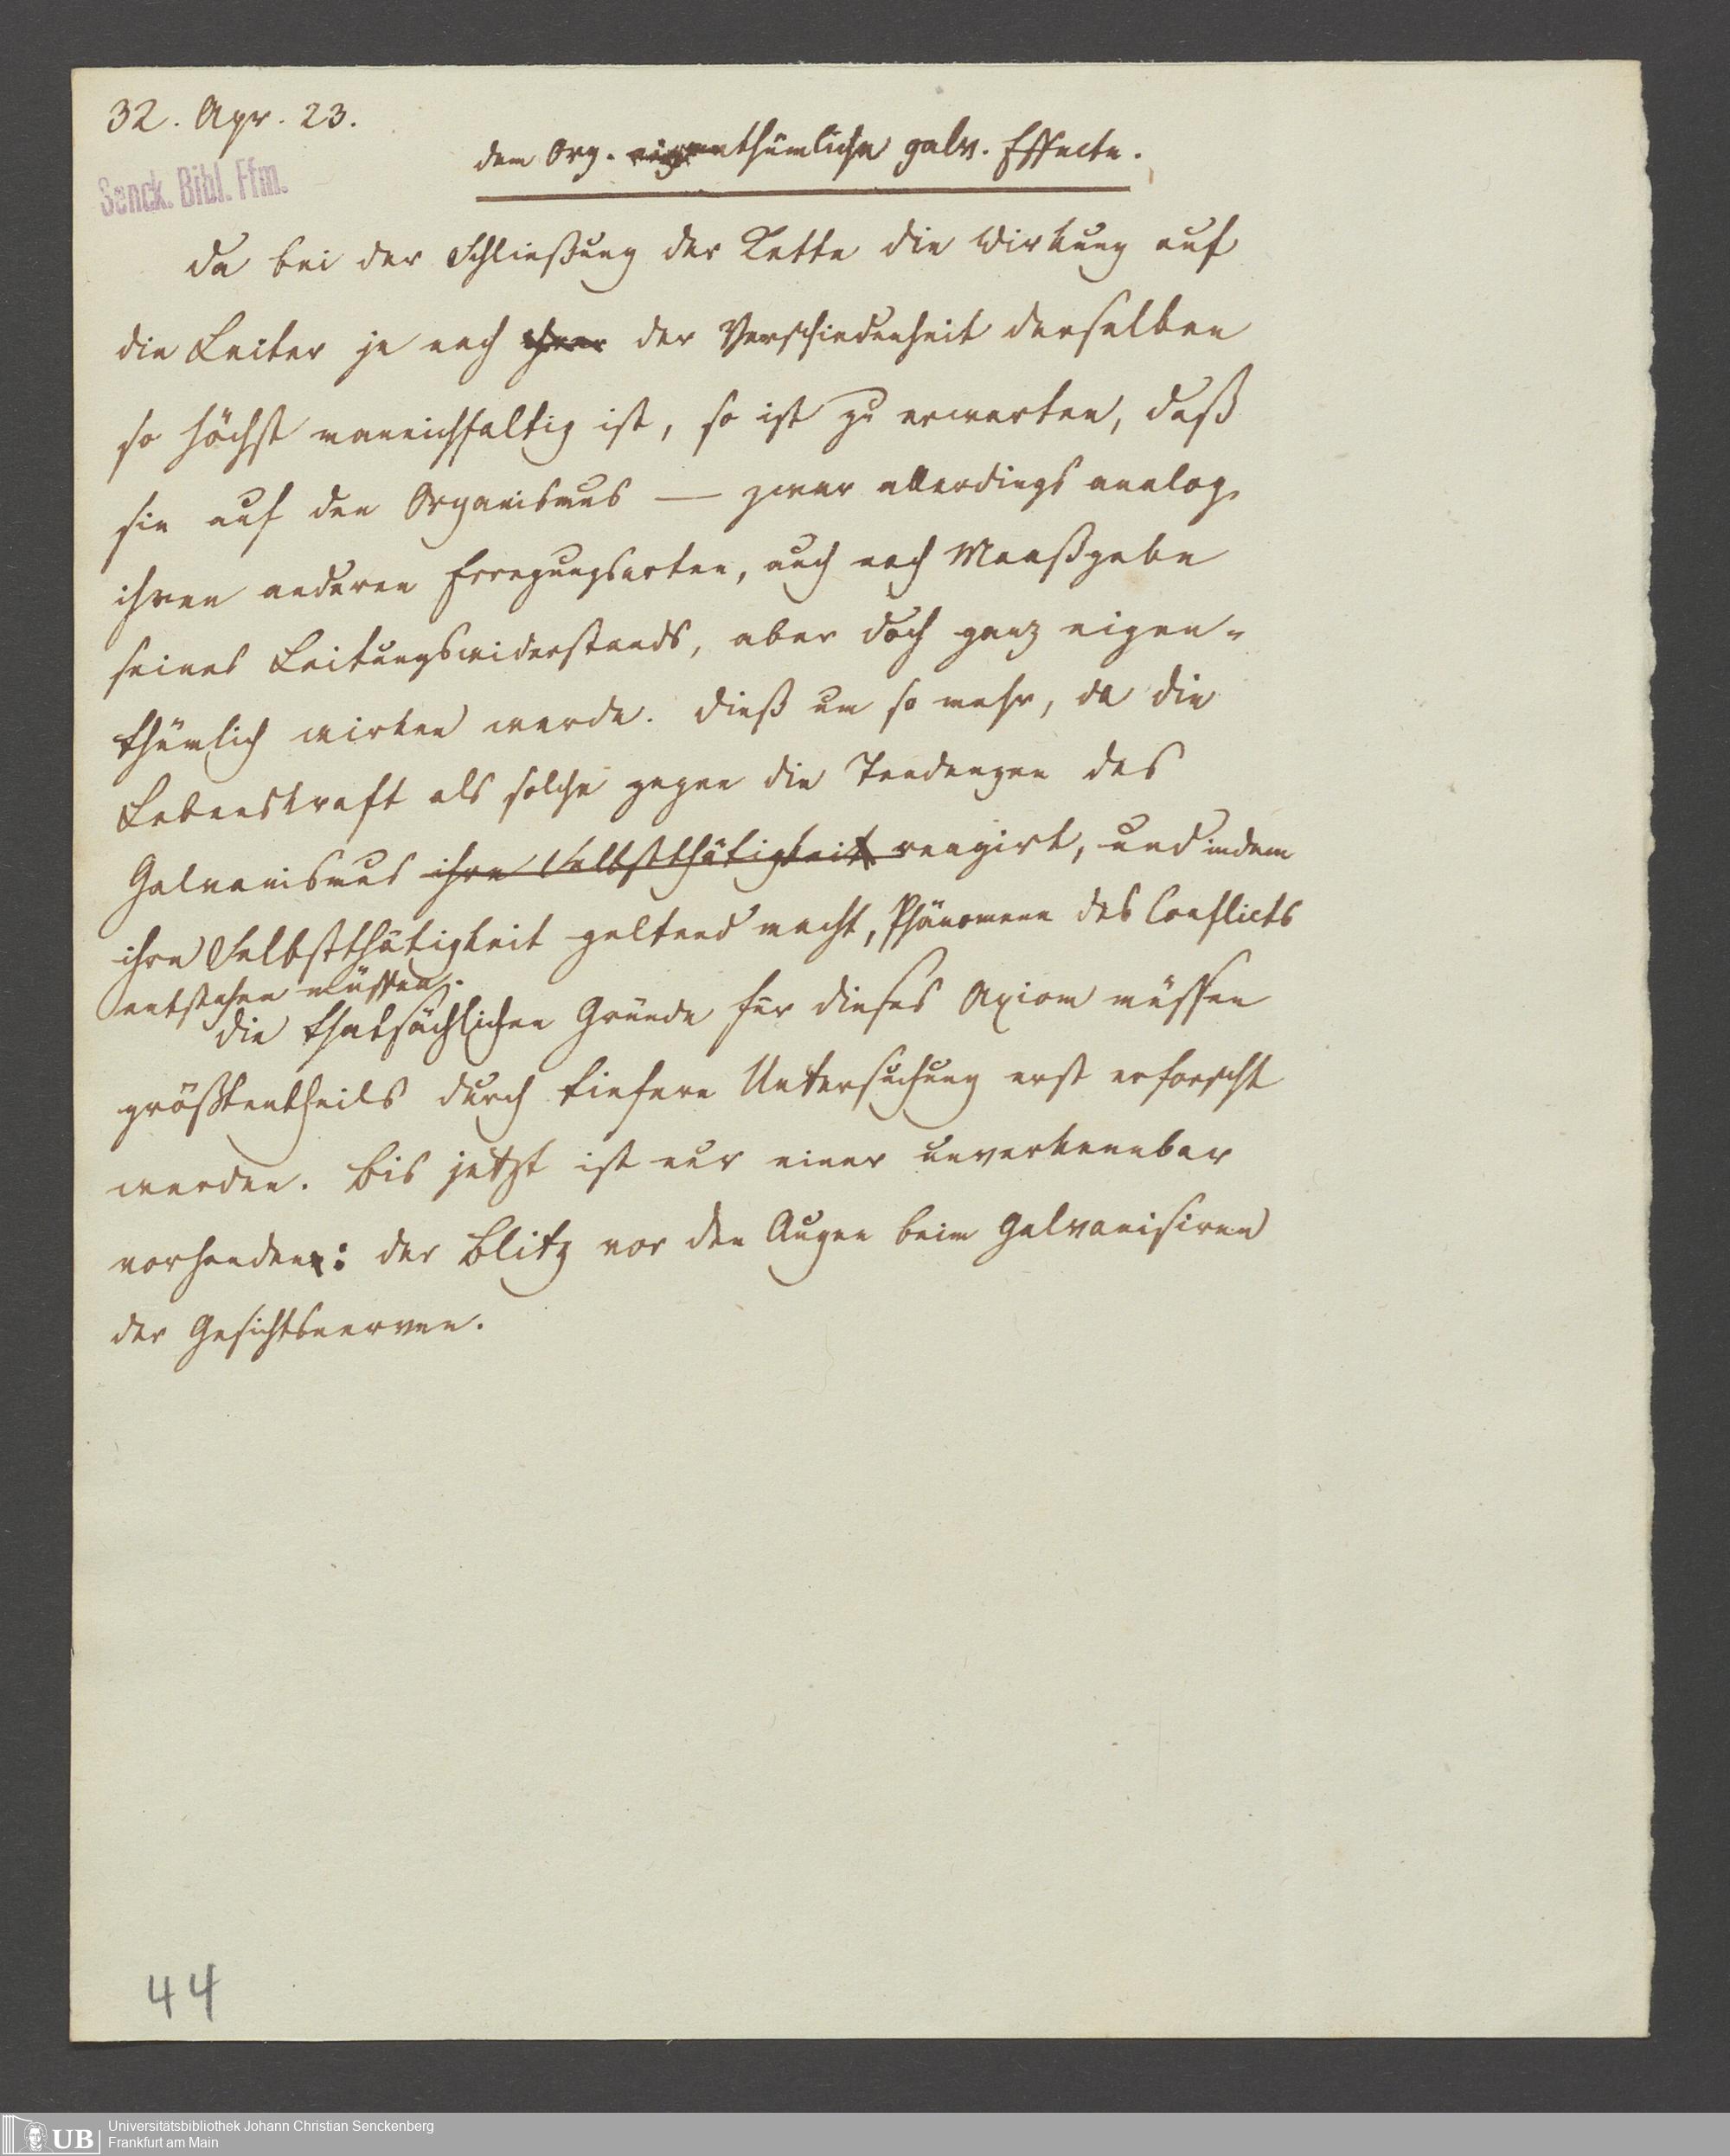 32. Apr. 23.
dem Org. eigenthümliche galv. Effecte.
Senck. Bibl. Ffm.
da bei der Schließung der Kette die Wirkung auf
die Leiter je nach ihrer der Verschiedenheit derselben
so höchst mannichfaltig ist, so ist zu erwarten, daß
sie auf den Organismus — zwar allerdings analog
ihren anderen Erregungsarten, auch nach Maaßgabe
seines Leitungswiderstands, aber doch ganz eigen-
thümlich wirken werde. dieß um so mehr, da die
Lebenskraft als solche gegen die Tendenzen des
Galvanismus ihre Selbstthätigkeit reagirt, und indem
ihre Selbstthätigkeit geltend macht, Phänomene des Conflicts
entstehen müssen.
die thatsächlichen Gründe für dieses Axiom müssen
größtentheils durch tiefere Untersuchung erst erforscht
werden. bis jetzt ist nur einer unverkennbar
vorhanden: der Blitz vor den Augen beim Galvanisiren
der Gesichtsnerven.
44
UB Universitätsbibliothek Johann Christian Senckenberg
Frankfurt am Main